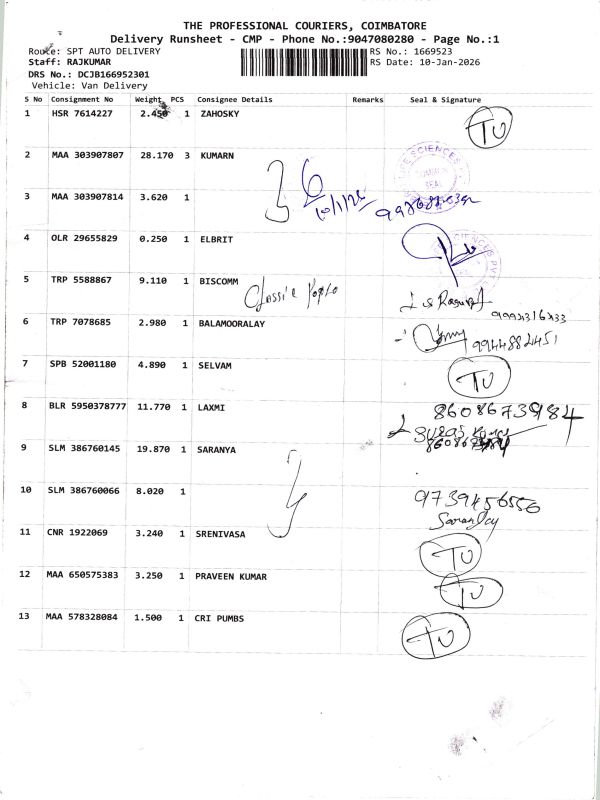 THE PROFESSIONAL COURIERS, COIMBATORE
Delivery Runsheet - CMP - Phone No.:9047080280 - Page No.:1
Route: SPT AUTO DELIVERY
RS No.: 1669523
Staff: RAJKUMAR
RS Date: 10-Jan-2026
DRS No.: DCJB166952301
Vehicle: Van Delivery
S No Consignment No Weight PCS Consignee Details Remarks Seal & Signature
1 HSR 7614227 2.450 1 ZAHOSKY TU
2 MAA 303907807 28.170 3 KUMARN
3 MAA 303907814 3.620 1
10/1/26
4 OLR 29655829 0.250 1 ELBRIT
5 TRP 5588867 9.110 1 BISCOMM
6 TRP 7078685 2.980 1 BALAMOORALAY
9944882451
7 SPB 52001180 4.890 1 SELVAM TU
8 BLR 5950378777 11.770 1 LAXMI 8608673984
9 SLM 386760145 19.870 1 SARANYA
10 SLM 386760066 8.020 1
11 CNR 1922069 3.240 1 SRENIVASA TU
12 MAA 650575383 3.250 1 PRAVEEN KUMAR TU
13 MAA 578328084 1.500 1 CRI PUMBS TU